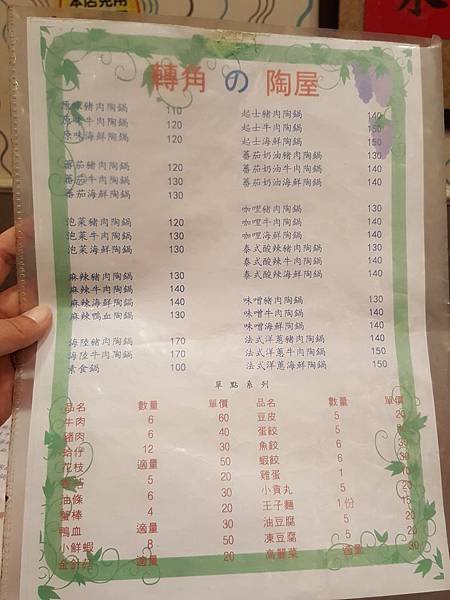 本店免用
轉角の陶屋
原味豬肉陶鍋 110
原味牛肉陶鍋 120
原味海鮮陶鍋 120
蕃茄豬肉陶鍋 120
蕃茄牛肉陶鍋 130
蕃茄海鮮陶鍋 130
泡菜豬肉陶鍋 120
泡菜牛肉陶鍋 130
泡菜海鮮陶鍋 130
麻辣豬肉陶鍋 130
麻辣牛肉陶鍋 140
麻辣海鮮陶鍋 140
麻辣鴨血陶鍋 130
海陸豬肉陶鍋 170
海陸牛肉陶鍋 170
素食鍋 100
起士豬肉陶鍋 140
起士牛肉陶鍋 150
起士海鮮陶鍋 150
蕃茄奶油豬肉陶鍋 130
蕃茄奶油牛肉陶鍋 140
蕃茄奶油海鮮陶鍋 140
咖哩豬肉陶鍋 130
咖哩牛肉陶鍋 140
咖哩海鮮陶鍋 140
泰式酸辣豬肉陶鍋 130
泰式酸辣牛肉陶鍋 140
泰式酸辣海鮮陶鍋 140
味噌豬肉陶鍋 130
味噌牛肉陶鍋 140
味噌海鮮陶鍋 140
法式洋蔥豬肉陶鍋 140
法式洋蔥牛肉陶鍋 150
法式洋蔥海鮮陶鍋 150
單點系列
品名 數量 單價
牛肉 6 60
豬肉 6 40
蛤仔 12 30
花枝 適量 50
5 20
油條 6 20
蟹棒 4 30
鴨血 適量 30
小鮮蝦 8 50
金針菇 適量 20
品名 數量 單價
豆皮 5 20
蛋餃 5
魚餃 6
蝦餃 6
雞蛋 1
小貢丸 5 20
王子麵 1份 15
油豆腐 5 20
凍豆腐 5
高麗菜 適量 30